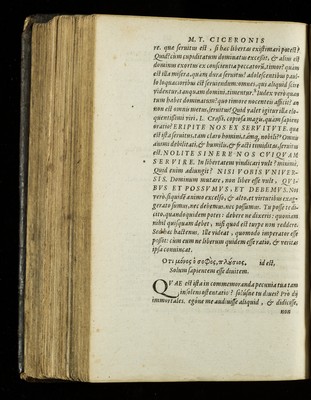 M. T. CICERONIS
re. que seruitus est, si hæc libertas existimari potest?
Quid? cum cupiditatum dominatus excessit, & alius est
dominus exortus ex conscientia peccatorū, timor? quàm
est illa misera, quàm dura seruitus? adolescentibus paul-
lo loquacioribus est seruiendum: omnes, qui aliquid scire
videntur, tanquam domini, timentur. Iudex verò quan
tum habet dominatum? quo timore nocentis afficit? an
non est omnis metus, seruitus? Quid valet igitur illa elo-
quentissimi viri, L. Crassi, copiosa magis, quàm sapiens
oratio? ERIPITE NOS EX SERVITVTE. quæ
est ista seruitus, tam claro homini, támq. nobili? Omnis
animi debilitati, & humilis, & fracti timiditas, seruitus
est. NOLITE SINERE NOS CVIQVAM
SERVIRE. In libertatem vindicari vult? minimè.
Quid enim adiungit? NISI VOBIS VNIVER-
SIS. Dominum mutare, non liber esse vult. QVI-
BVS ET POSSVMVS, ET DEBEMVS. Nos
verò, siquidē animo excelso, & alto, et virtutibus exag-
gerato sumus, nec debemus, nec possumus. Tu posse te di-
cito, quando quidem potes: debere ne dixeris: quoniam
nihil quisquam debet, nisi quod est turpe non reddere.
Sed hæc hactenus. Ille videat, quomodo imperator esse
possit: cùm eum ne liberum quidem esse ratio, & veritas
ipsa conuincat.
Οτι μόνος ὁ σοφὸς, πλούσιος. id est,
Solum sapientem esse diuitem.
QVAE est ista in commemoranda pecunia tua tam
insolens ostentatio? solúsne tu diues? Prò dij
immortales. egóne me audiuisse aliquid, & didicisse,
non